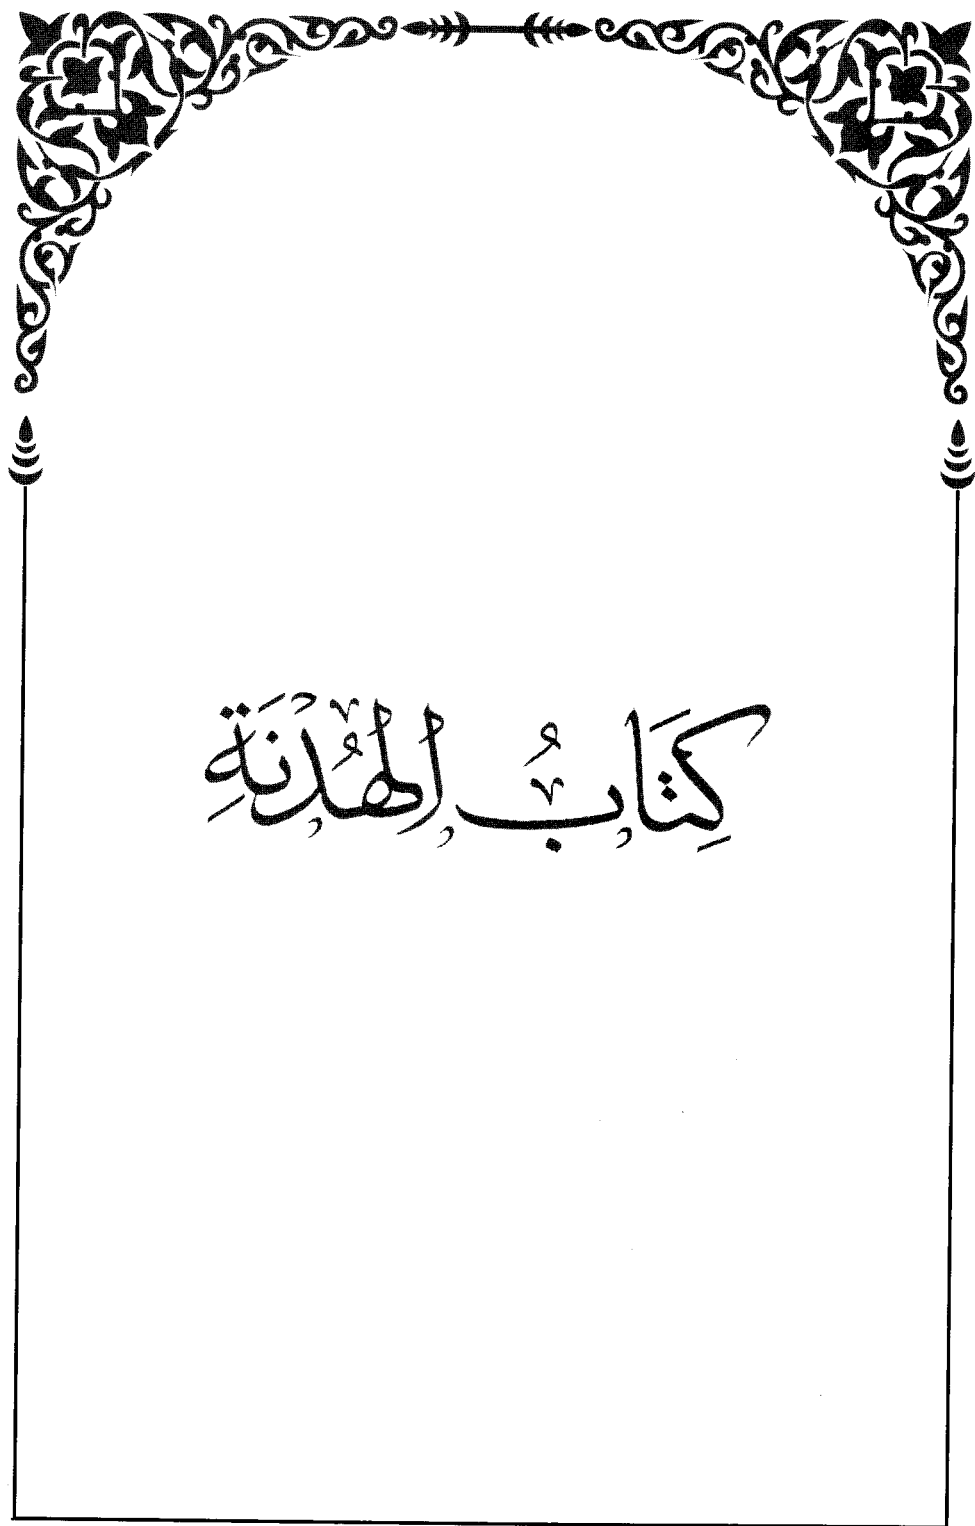 كِتَابُ الْهُدْنَةِ